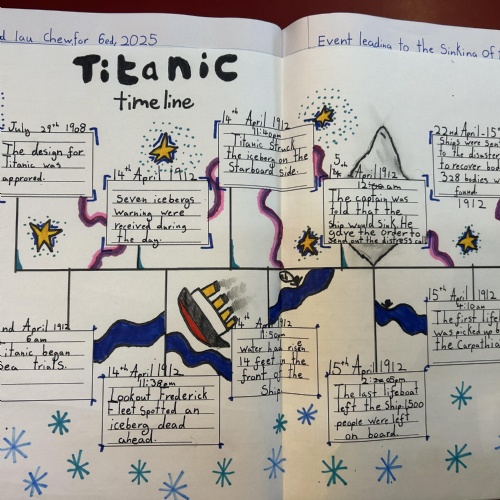 lau Chew, for Ged, 2025
Event leading to the Sinking of
Titanic
timeline
July 29th 1908
The design for
Titanic was
approved.
14th April 1912
Seven icebergs
Warning were
received during
the day.
4th April 1912
11:40pm
Titanic Struck
the iceberg on the
Starboard side.
5th April 1912
am
The captain was
told that the
Ship would Sink. He
gave the order to
send out the distress call
22nd April-15
Ships were sent
to the disaster
to recover bod
328 bodies w
found.
1912
nd April 1912
6am
itanic began
Sea trials.
14th April 1912
11:38pm
Lookout Frederick
Fleet Spotted an
iceberg dead
ahead.
April 1912
11:50pm
water had risen
14 feet in the
front of the
Ship.
15th April 1912
2:05am
The last lifeboat
left the Ship. 1500
people were left
on board.
15th April 191
4:10am
The first life
was picked up b
the Carpathia